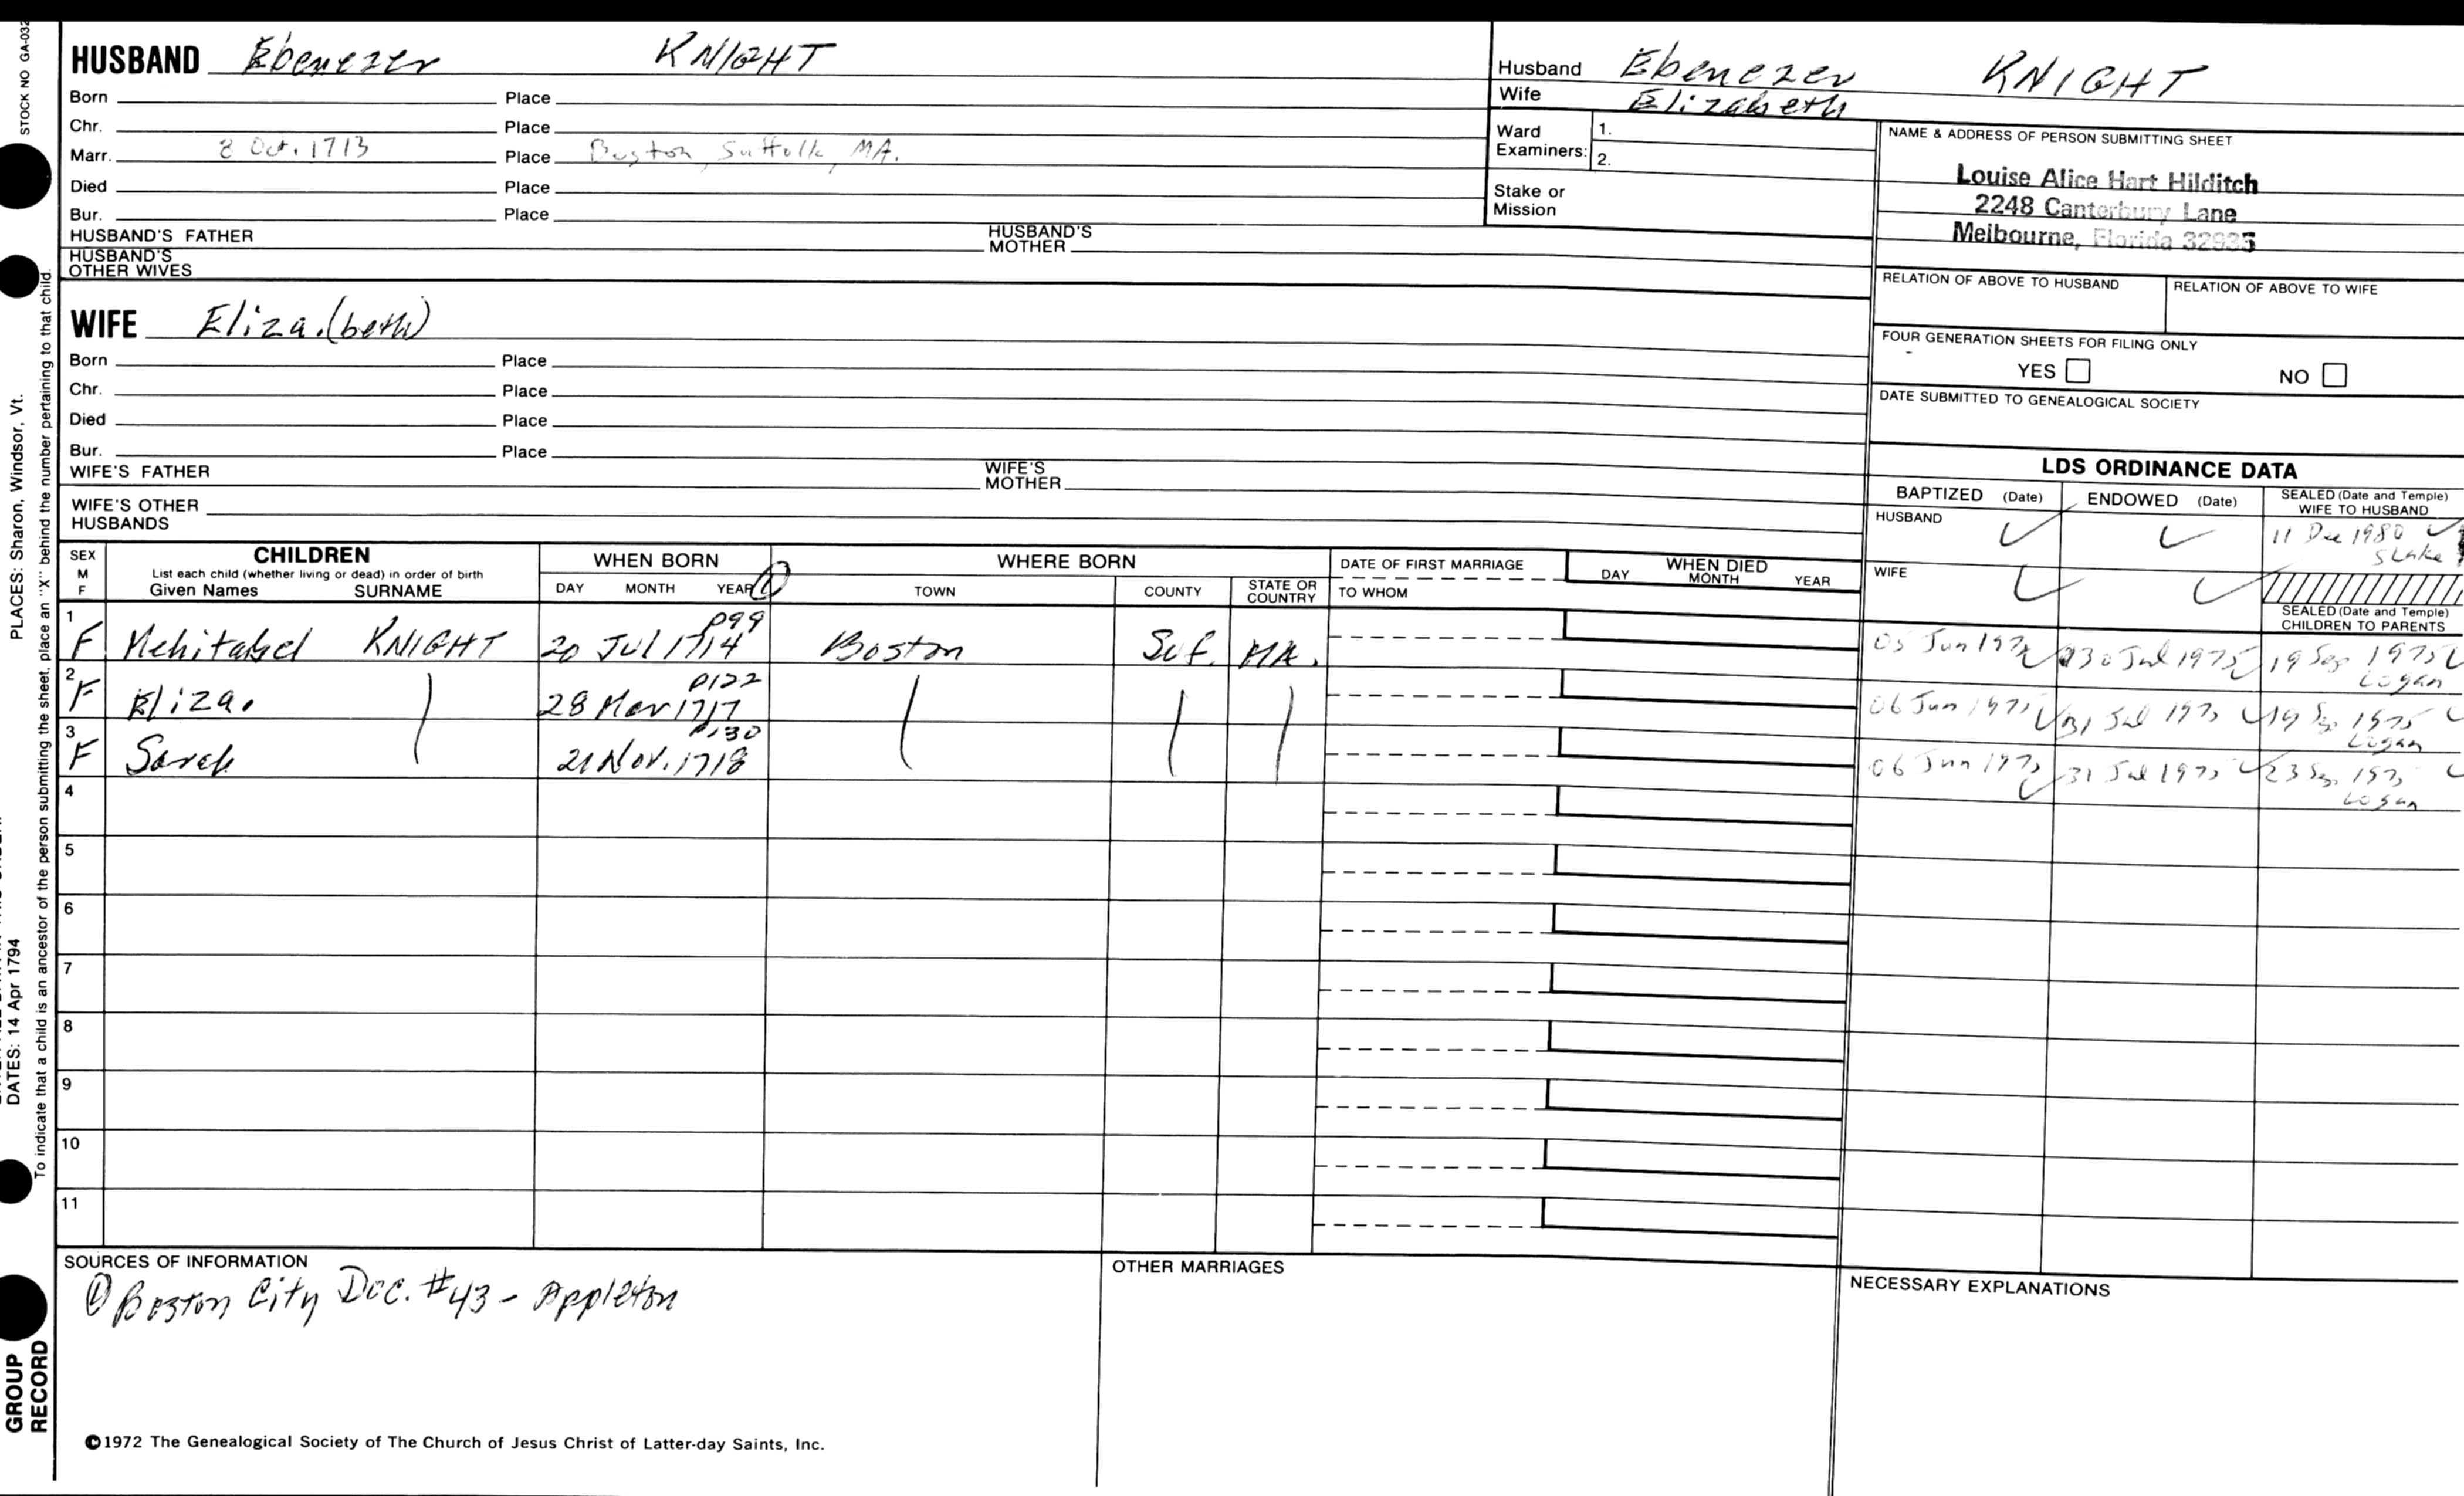 STOCK NO GA-032
PLACES: Sharon, Windsor, Vt.
DATES: 14 Apr 1794
To indicate that a child is an ancestor of the person submitting the sheet, place an "X" behind the number pertaining to that child.
GROUP
RECORD
HUSBAND Ebenezer KNIGHT
Born Place
Chr. Place
Marr. 8 Oct. 1713 Place Boston, Suffolk, MA.
Died Place
Bur. Place
HUSBAND'S FATHER HUSBAND'S MOTHER
HUSBAND'S
OTHER WIVES
WIFE Eliza.(beth)
Born Place
Chr. Place
Died Place
Bur. Place
WIFE'S FATHER WIFE'S MOTHER
WIFE'S OTHER
HUSBANDS
Husband Ebenezer KNIGHT
Wife Elizabeth
Ward
Examiners: 1.
2.
Stake or
Mission
NAME & ADDRESS OF PERSON SUBMITTING SHEET
Louise Alice Hart Hilditch
2248 Canterbury Lane
Melbourne, Florida 32935
RELATION OF ABOVE TO HUSBAND RELATION OF ABOVE TO WIFE
FOUR GENERATION SHEETS FOR FILING ONLY
YES NO
DATE SUBMITTED TO GENEALOGICAL SOCIETY
LDS ORDINANCE DATA
BAPTIZED (Date) ENDOWED (Date) SEALED (Date and Temple)
WIFE TO HUSBAND
HUSBAND ✓ ✓ 11 Dec 1980 ✓
SLake
WIFE ✓ ✓
SEALED (Date and Temple)
CHILDREN TO PARENTS
SEX
M
F
CHILDREN
List each child (whether living or dead) in order of birth
Given Names SURNAME
WHEN BORN
DAY MONTH YEAR ①
WHERE BORN
TOWN COUNTY STATE OR COUNTRY
DATE OF FIRST MARRIAGE
TO WHOM
WHEN DIED
DAY MONTH YEAR
1 p99
F Mehitabel KNIGHT 20 Jul 1714 Boston Suf. MA. 05 Jun 1975 30 Jul 1975 19 Sep 1975
Logan
2 p122
F Eliza. 28 Mar 1717 06 Jun 1975 31 Jul 1975 19 Sep 1975
Logan
3 p130
F Sarah 21 Nov. 1718 06 Jun 1975 31 Jul 1975 23 Sep 1975
Logan
4
5
6
7
8
9
10
11
SOURCES OF INFORMATION
① Boston City Doc. #43 - Appleton
OTHER MARRIAGES
NECESSARY EXPLANATIONS
©1972 The Genealogical Society of The Church of Jesus Christ of Latter-day Saints, Inc.